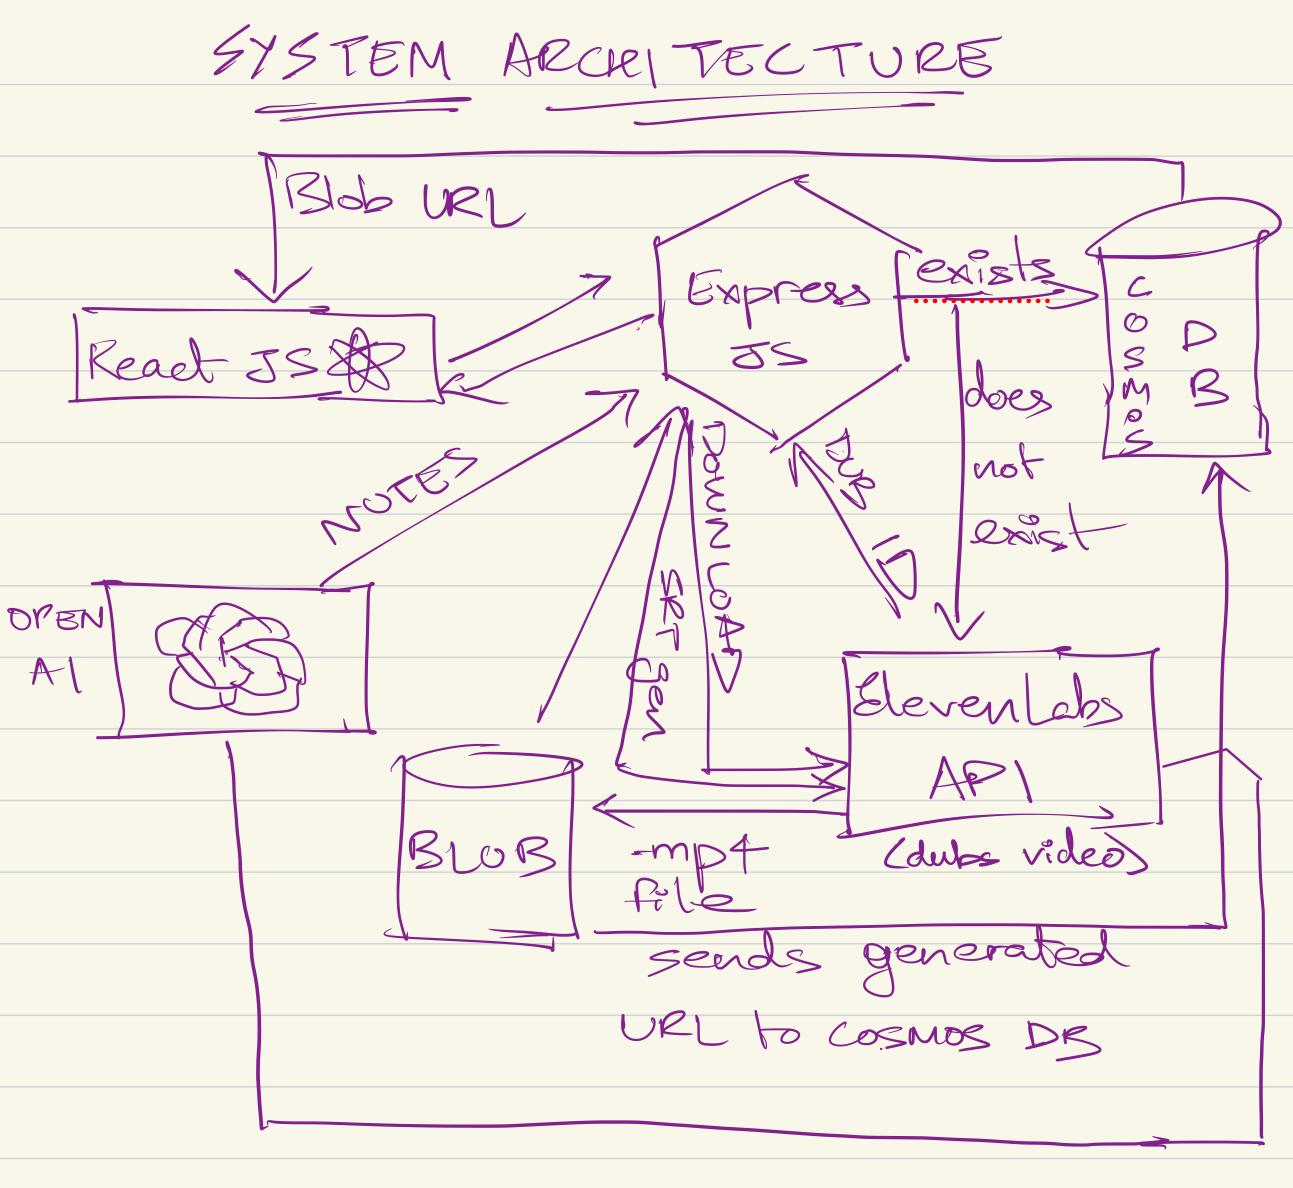 SYSTEM ARCHITECTURE
Blob URL
exists
Express
JS
React JS
COSMOS
DB
does
not
exist
NOTES
DUB
ID
DOWNLOAD
SRT Gen
OPEN
AI
ElevenLabs
API
(dubs video)
BLOB
-mp4
file
sends generated
URL to COSMOS DB